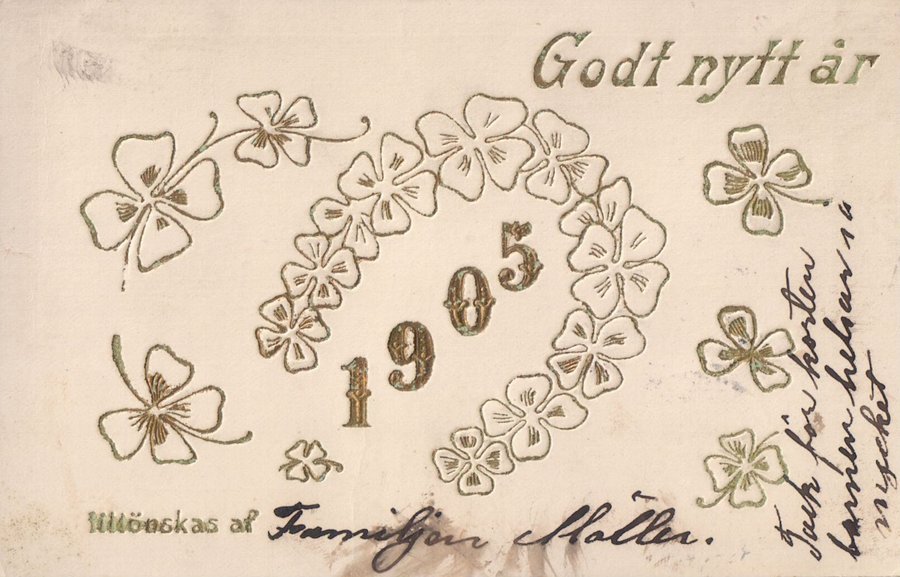 Godt nytt år
1905
tillönskas af Familjen Möller.
Tack för korten
barnen helsar så
mycket